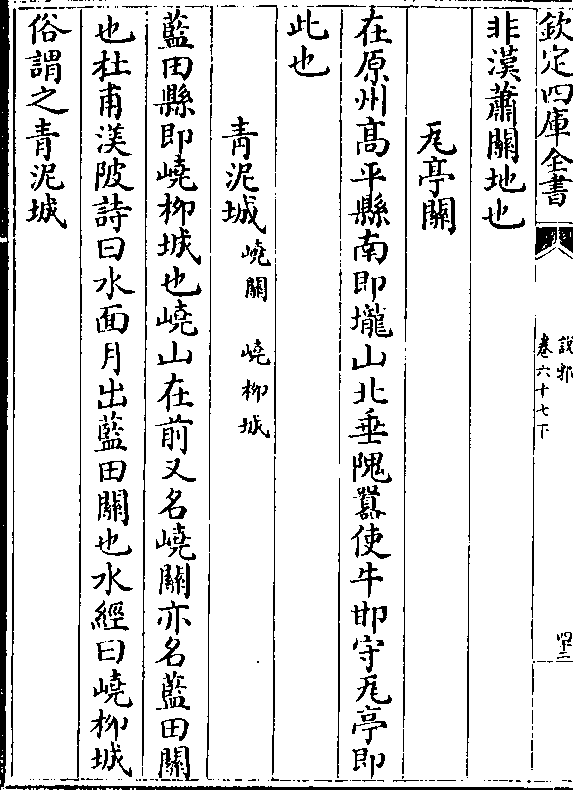 欽定四庫全書
說郛
卷六十七下
四十二
非漢蕭關地也
瓦亭關
在原州高平縣南即壠山北垂隗囂使牛邯守瓦亭即
此也
青泥城 嶢關 嶢柳城
藍田縣即嶢柳城也嶢山在前又名嶢關亦名藍田關
也杜甫渼陂詩曰水面月出藍田關也水經曰嶢柳城
俗謂之青泥城